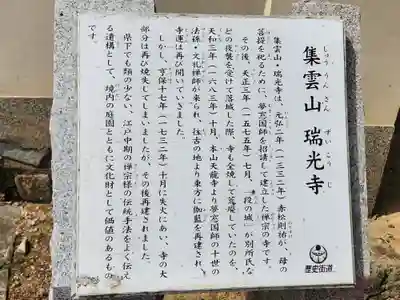 しゅう うん ざん　ずい こう じ
集雲山 瑞光寺
集雲山・瑞光寺は、元弘二年(一三三二年)赤松則祐が、母の
菩提を祀るために、夢窓国師を招請して建立した禅宗の寺です。
その後、天正三年(一五七五年)七月、「段の城」が別所氏な
どの夜襲を受けて落城した際、寺も全焼して荒廃していたのを、
天和三年(一六八三年)十月、本山天龍寺より夢窓国師の十世の
法孫・文礼禅師が来られ、往古の地より東方に伽藍を再建され、
寺運は再び開いていきました。
しかし、享保十七年(一七三二年)十月に失火にあい、寺の大
部分は再び焼失してしまいましたが、その後再建されました。
県下でも類の少ない、江戸中期の禅宗様の伝統手法をよく伝え
る遺構として、境内の庭園とともに文化財として価値のあるもの
です。
歴史街道